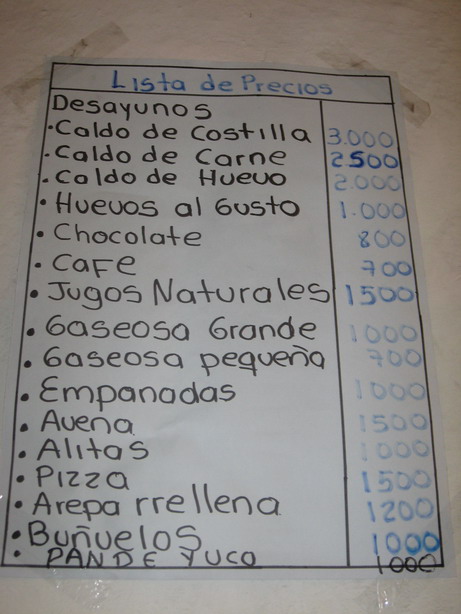 Lista de Precios
Desayunos
• Caldo de Costilla 3.000
• Caldo de Carne 2500
• Caldo de Huevo 2.000
• Huevos al Gusto 1.000
• Chocolate 800
• CaFe 700
• Jugos Naturales 1500
• Gaseosa Grande 1000
• Gaseosa pequeña 700
• Empanadas 1000
• Avena 1500
• Alitas 1000
• Pizza 1500
• Arepa rrellena 1200
• Buñuelos 1000
• PAN DE YUCO 1000